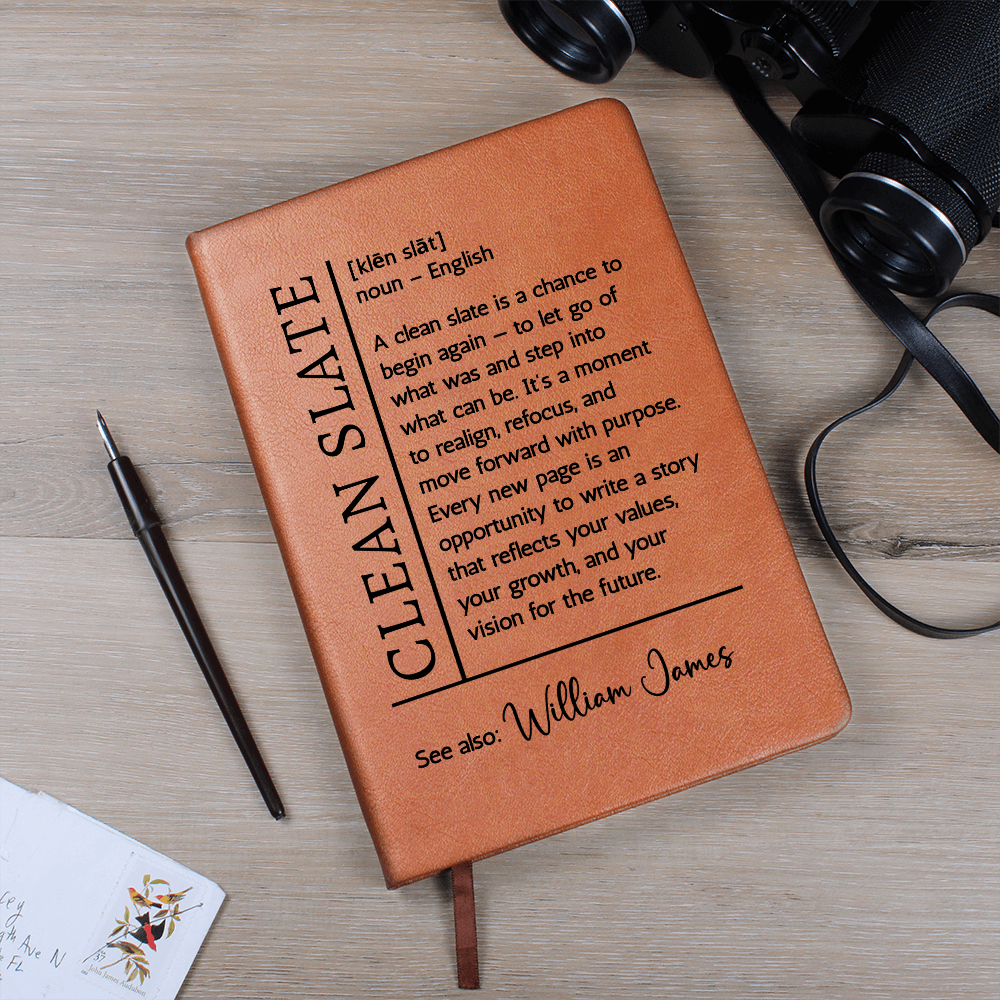 CLEAN SLATE
[klēn slāt]
noun – English
A clean slate is a chance to
begin again – to let go of
what was and step into
what can be. It's a moment
to realign, refocus, and
move forward with purpose.
Every new page is an
opportunity to write a story
that reflects your values,
your growth, and your
vision for the future.
See also: William James
Ave N
FL
37
John James Audubon